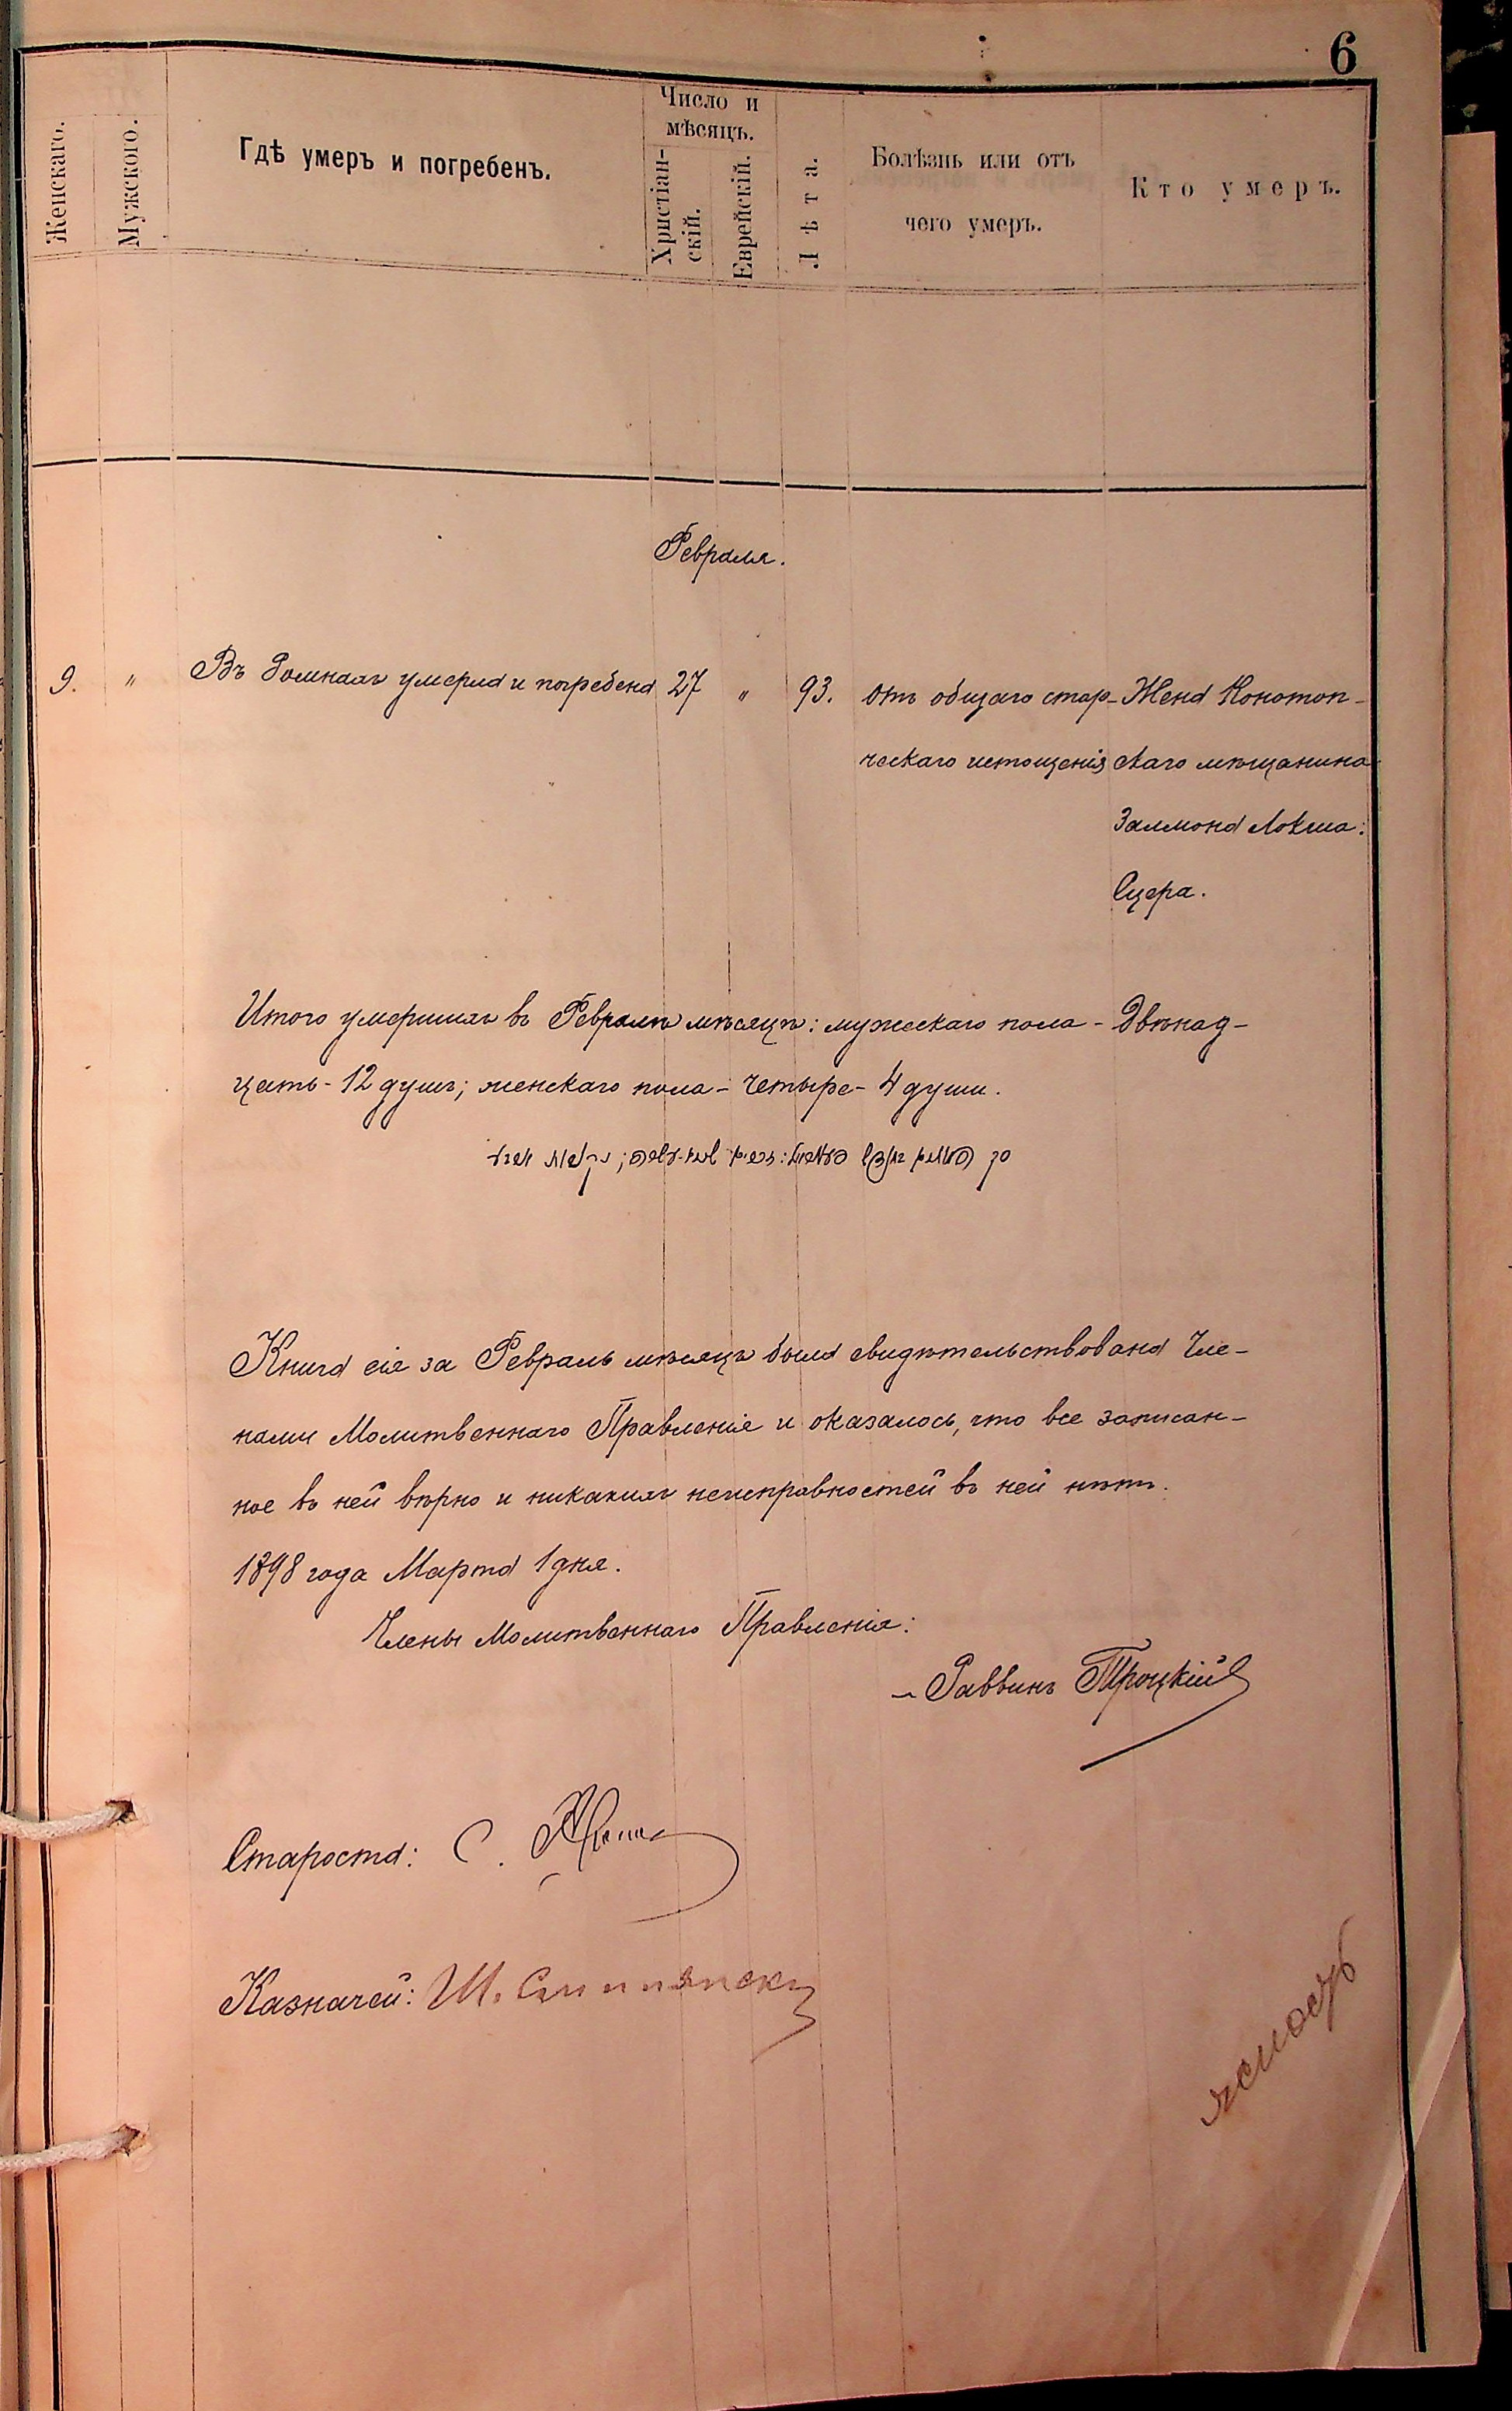 6
Женскаго.
Мужского.
Гдѣ умеръ и погребенъ.
Число и
мѣсяцъ.
Христіан-
скій.
Еврейскій.
Лѣта.
Болѣзнь или отъ
чего умеръ.
Кто умеръ.
Февраля.
9. " Въ Ромнахъ умерла и погребена 27 " 93. отъ общаго стар- Жена Конотоп-
ческаго истощенія скаго мѣщанина
Залмона Локша:
Сцера.
Итого умершихъ въ Февралѣ мѣсяцѣ: мужескаго пола - Двѣнад-
цать - 12 душъ; женскаго пола - четыре - 4 души.
Книга сія за Февраль мѣсяцъ была свидѣтельствована Чле-
нами Молитвеннаго Правленія и оказалось, что все записан-
ное въ ней вѣрно и никакихъ неисправностей въ ней нѣтъ.
1898 года Марта 1 дня.
Члены Молитвеннаго Правленія:
Раввинъ Троцкій
Староста: С.
Казначей: Ш.